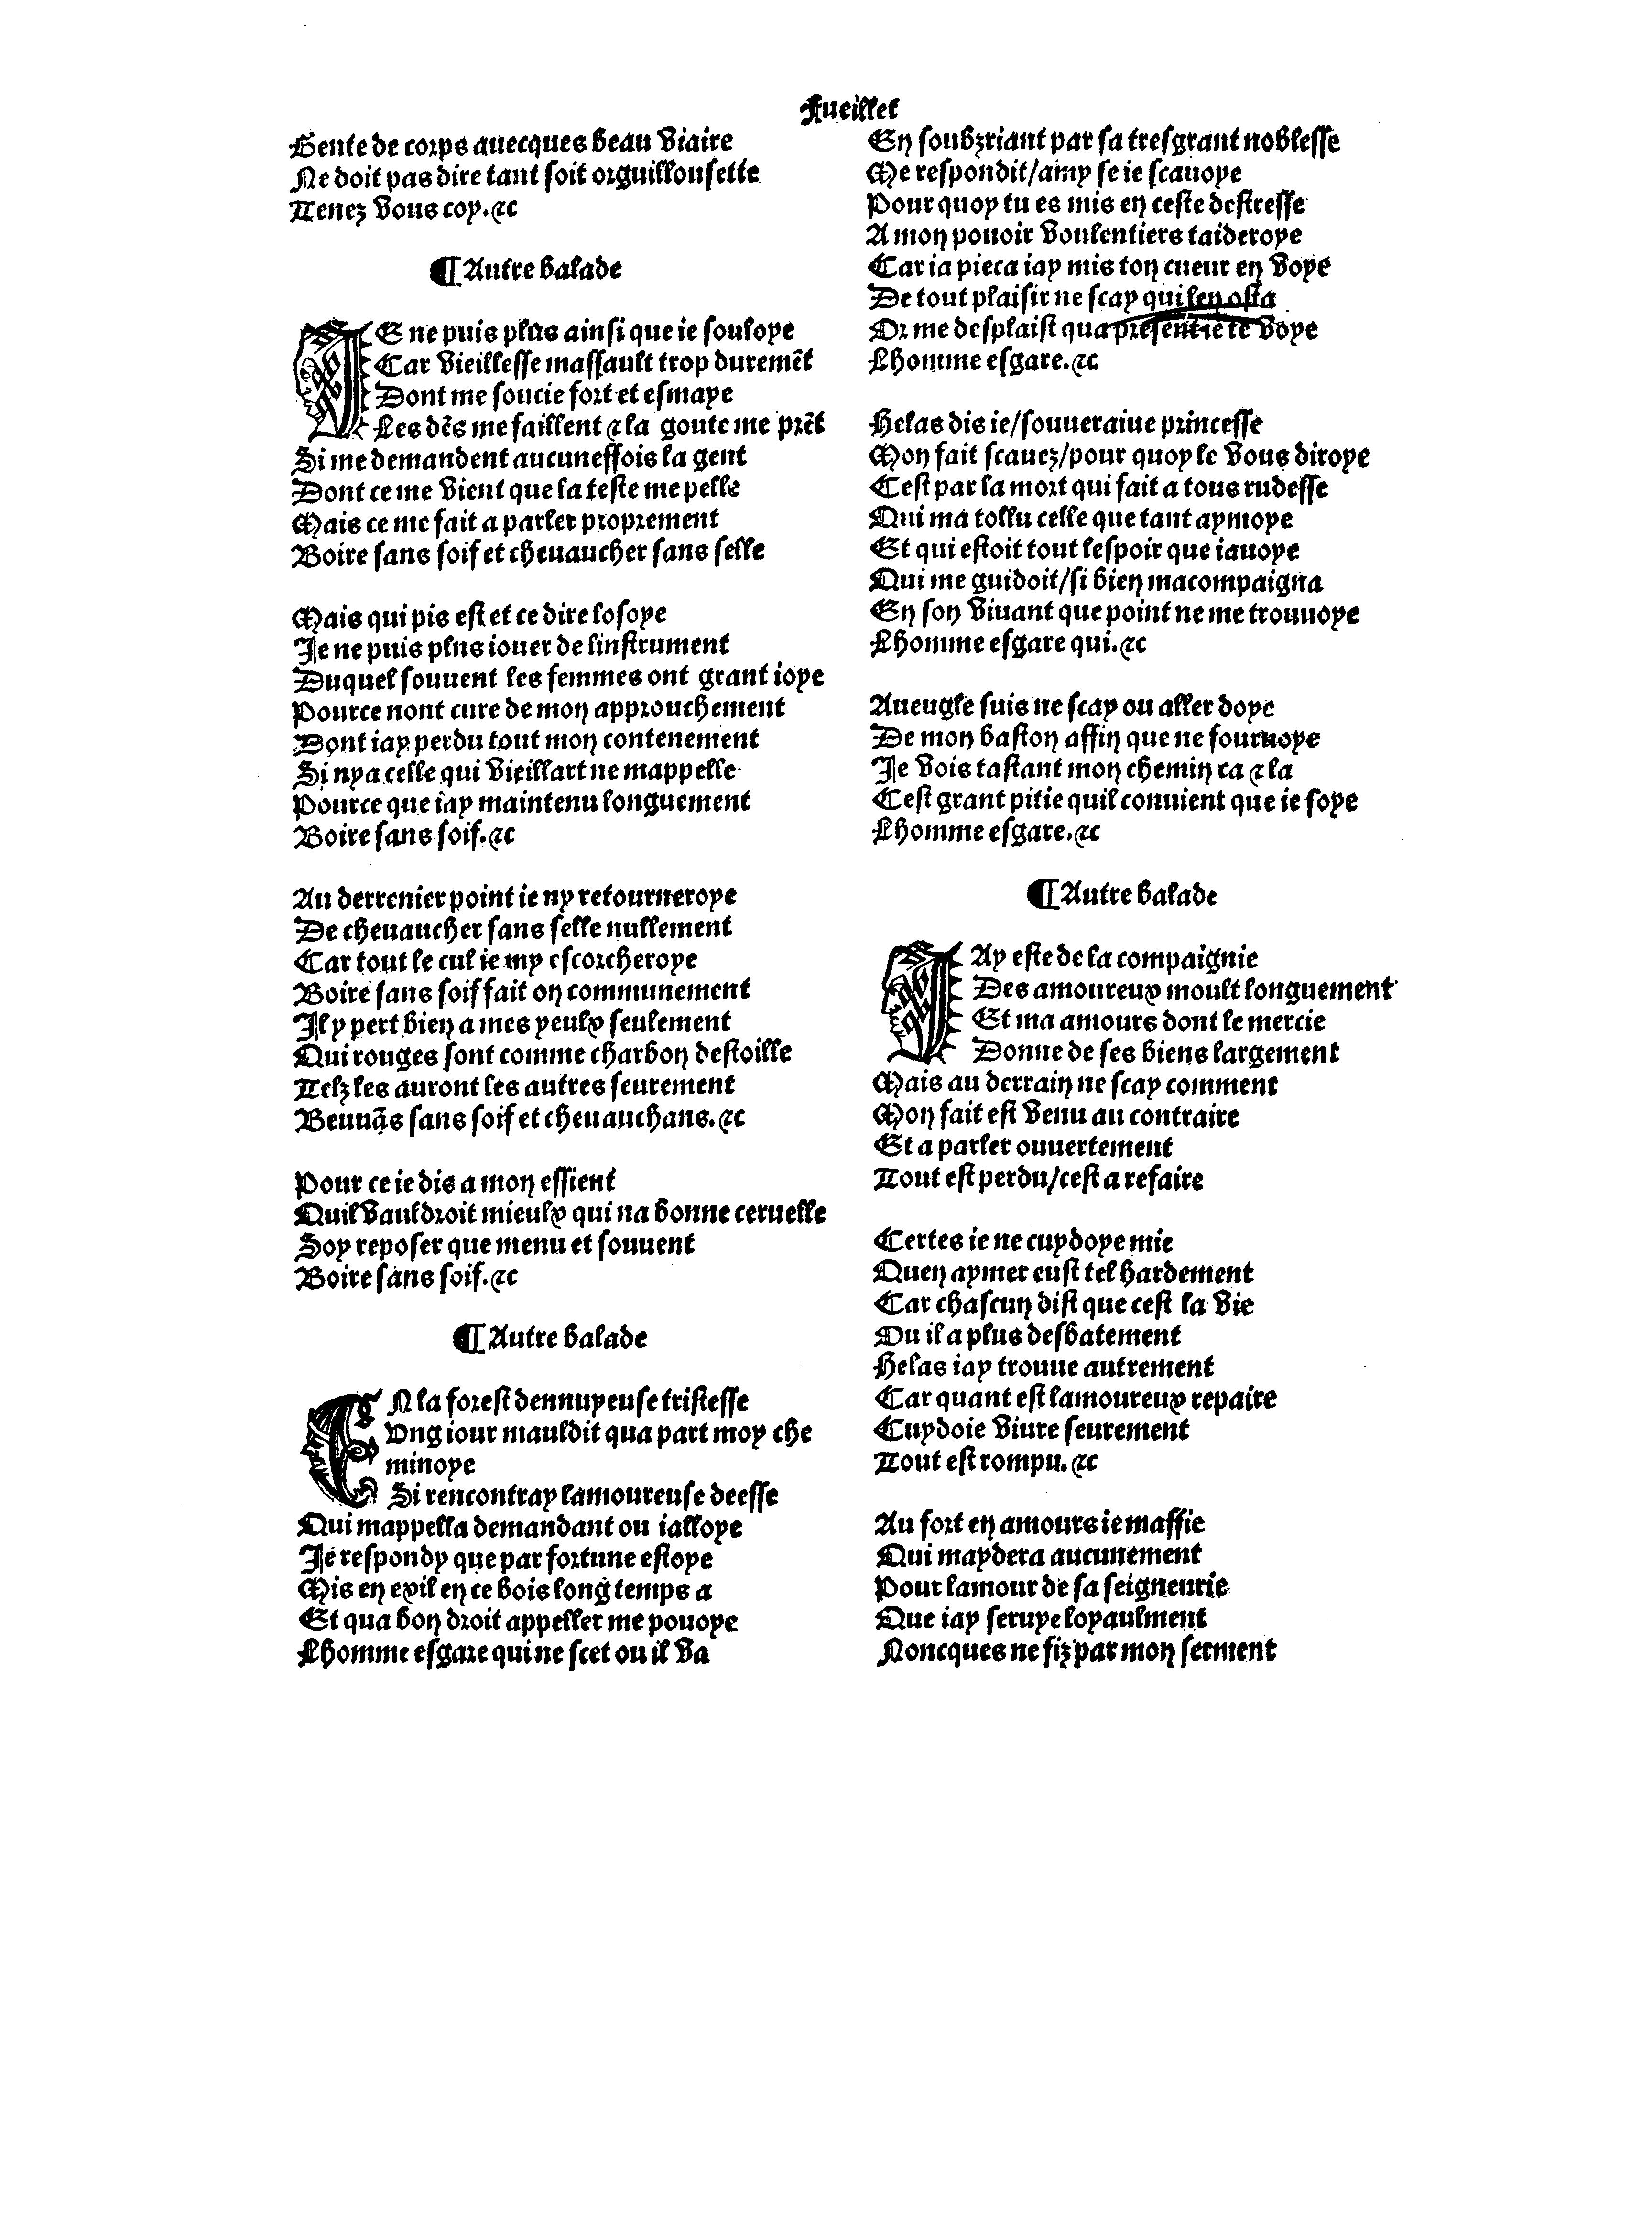 Fueillet
Gente de corps auecques beau viaire
Ne doit pas dire tant soit orguillousette
Tenez vous coy.⁊c
¶Autre balade
IE ne puis plus ainsi que ie souloye
Car vieillesse massault trop duremẽt
Dont me soucie fort et esmaye
Les dẽs me faillent ⁊ la goute me prẽt
Si me demandent aucuneffois la gent
Dont ce me vient que la teste me pelle
Mais ce me fait a parler proprement
Boire sans soif et cheuaucher sans selle
Mais qui pis est et ce dire losoye
Je ne puis plus iouer de linstrument
Duquel souuent les femmes ont grant ioye
Pource nont cure de mon approuchement
Dont iay perdu tout mon contenement
Si nya celle qui vieillart ne mappelle
Pource que iay maintenu longuement
Boire sans soif.⁊c
Au derrenier point ie ny retourneroye
De cheuaucher sans selle nullement
Car tout le cul ie my escorcheroye
Boire sans soif fait on communement
Il y pert bien a mes yeulx seulement
Qui rouges sont comme charbon destoille
Telz les auront les autres seurement
Beuuãs sans soif et cheuauchans.⁊c
Pour ce ie dis a mon essient
Quil vauldroit mieulx qui na bonne ceruelle
Soy reposer que menu et souuent
Boire sans soif.⁊c
¶Autre balade
EN la forest dennuyeuse tristesse
Vng iour mauldit qua part moy che
minoye
Si rencontray lamoureuse deesse
Qui mappella demandant ou ialloye
Je respondy que par fortune estoye
Mis en exil en ce bois long temps a
Et qua bon droit appeller me pouoye
Lhomme esgare qui ne scet ou il va
En soubzriant par sa tresgrant noblesse
Me respondit/amy se ie scauoye
Pour quoy tu es mis en ceste destresse
A mon pouoir voulentiers taideroye
Car ia pieca iay mis ton cueur en voye
De tout plaisir ne scay qui len osta
Or me desplaist qua present ie te voye
Lhomme esgare.⁊c
Helas dis ie/souueraiue princesse
Mon fait scauez/pour quoy le vous diroye
Cest par la mort qui fait a tous rudesse
Qui ma tollu celle que tant aymoye
Et qui estoit tout lespoir que iauoye
Qui me guidoit/si bien macompaigna
En son viuant que point ne me trouuoye
Lhomme esgare qui.⁊c
Aueugle suis ne scay ou aller doye
De mon baston affin que ne fouruoye
Je vois tastant mon chemin ca ⁊ la
Cest grant pitie quil conuient que ie soye
Lhomme esgare.⁊c
¶Autre balade
IAy este de la compaignie
Des amoureux moult longuement
Et ma amours dont le mercie
Donne de ses biens largement
Mais au derrain ne scay comment
Mon fait est venu au contraire
Et a parler ouuertement
Tout est perdu/cest a refaire
Certes ie ne cuydoye mie
Quen aymer eust tel hardement
Car chascun dist que cest la vie
Ou il a plus desbatement
Helas iay trouue autrement
Car quant est lamoureux repaire
Cuydoie viure seurement
Tout est rompu.⁊c
Au fort en amours ie maffie
Qui maydera aucunement
Pour lamour de sa seigneurie
Que iay seruye loyaulment
Noncques ne fiz par mon serment